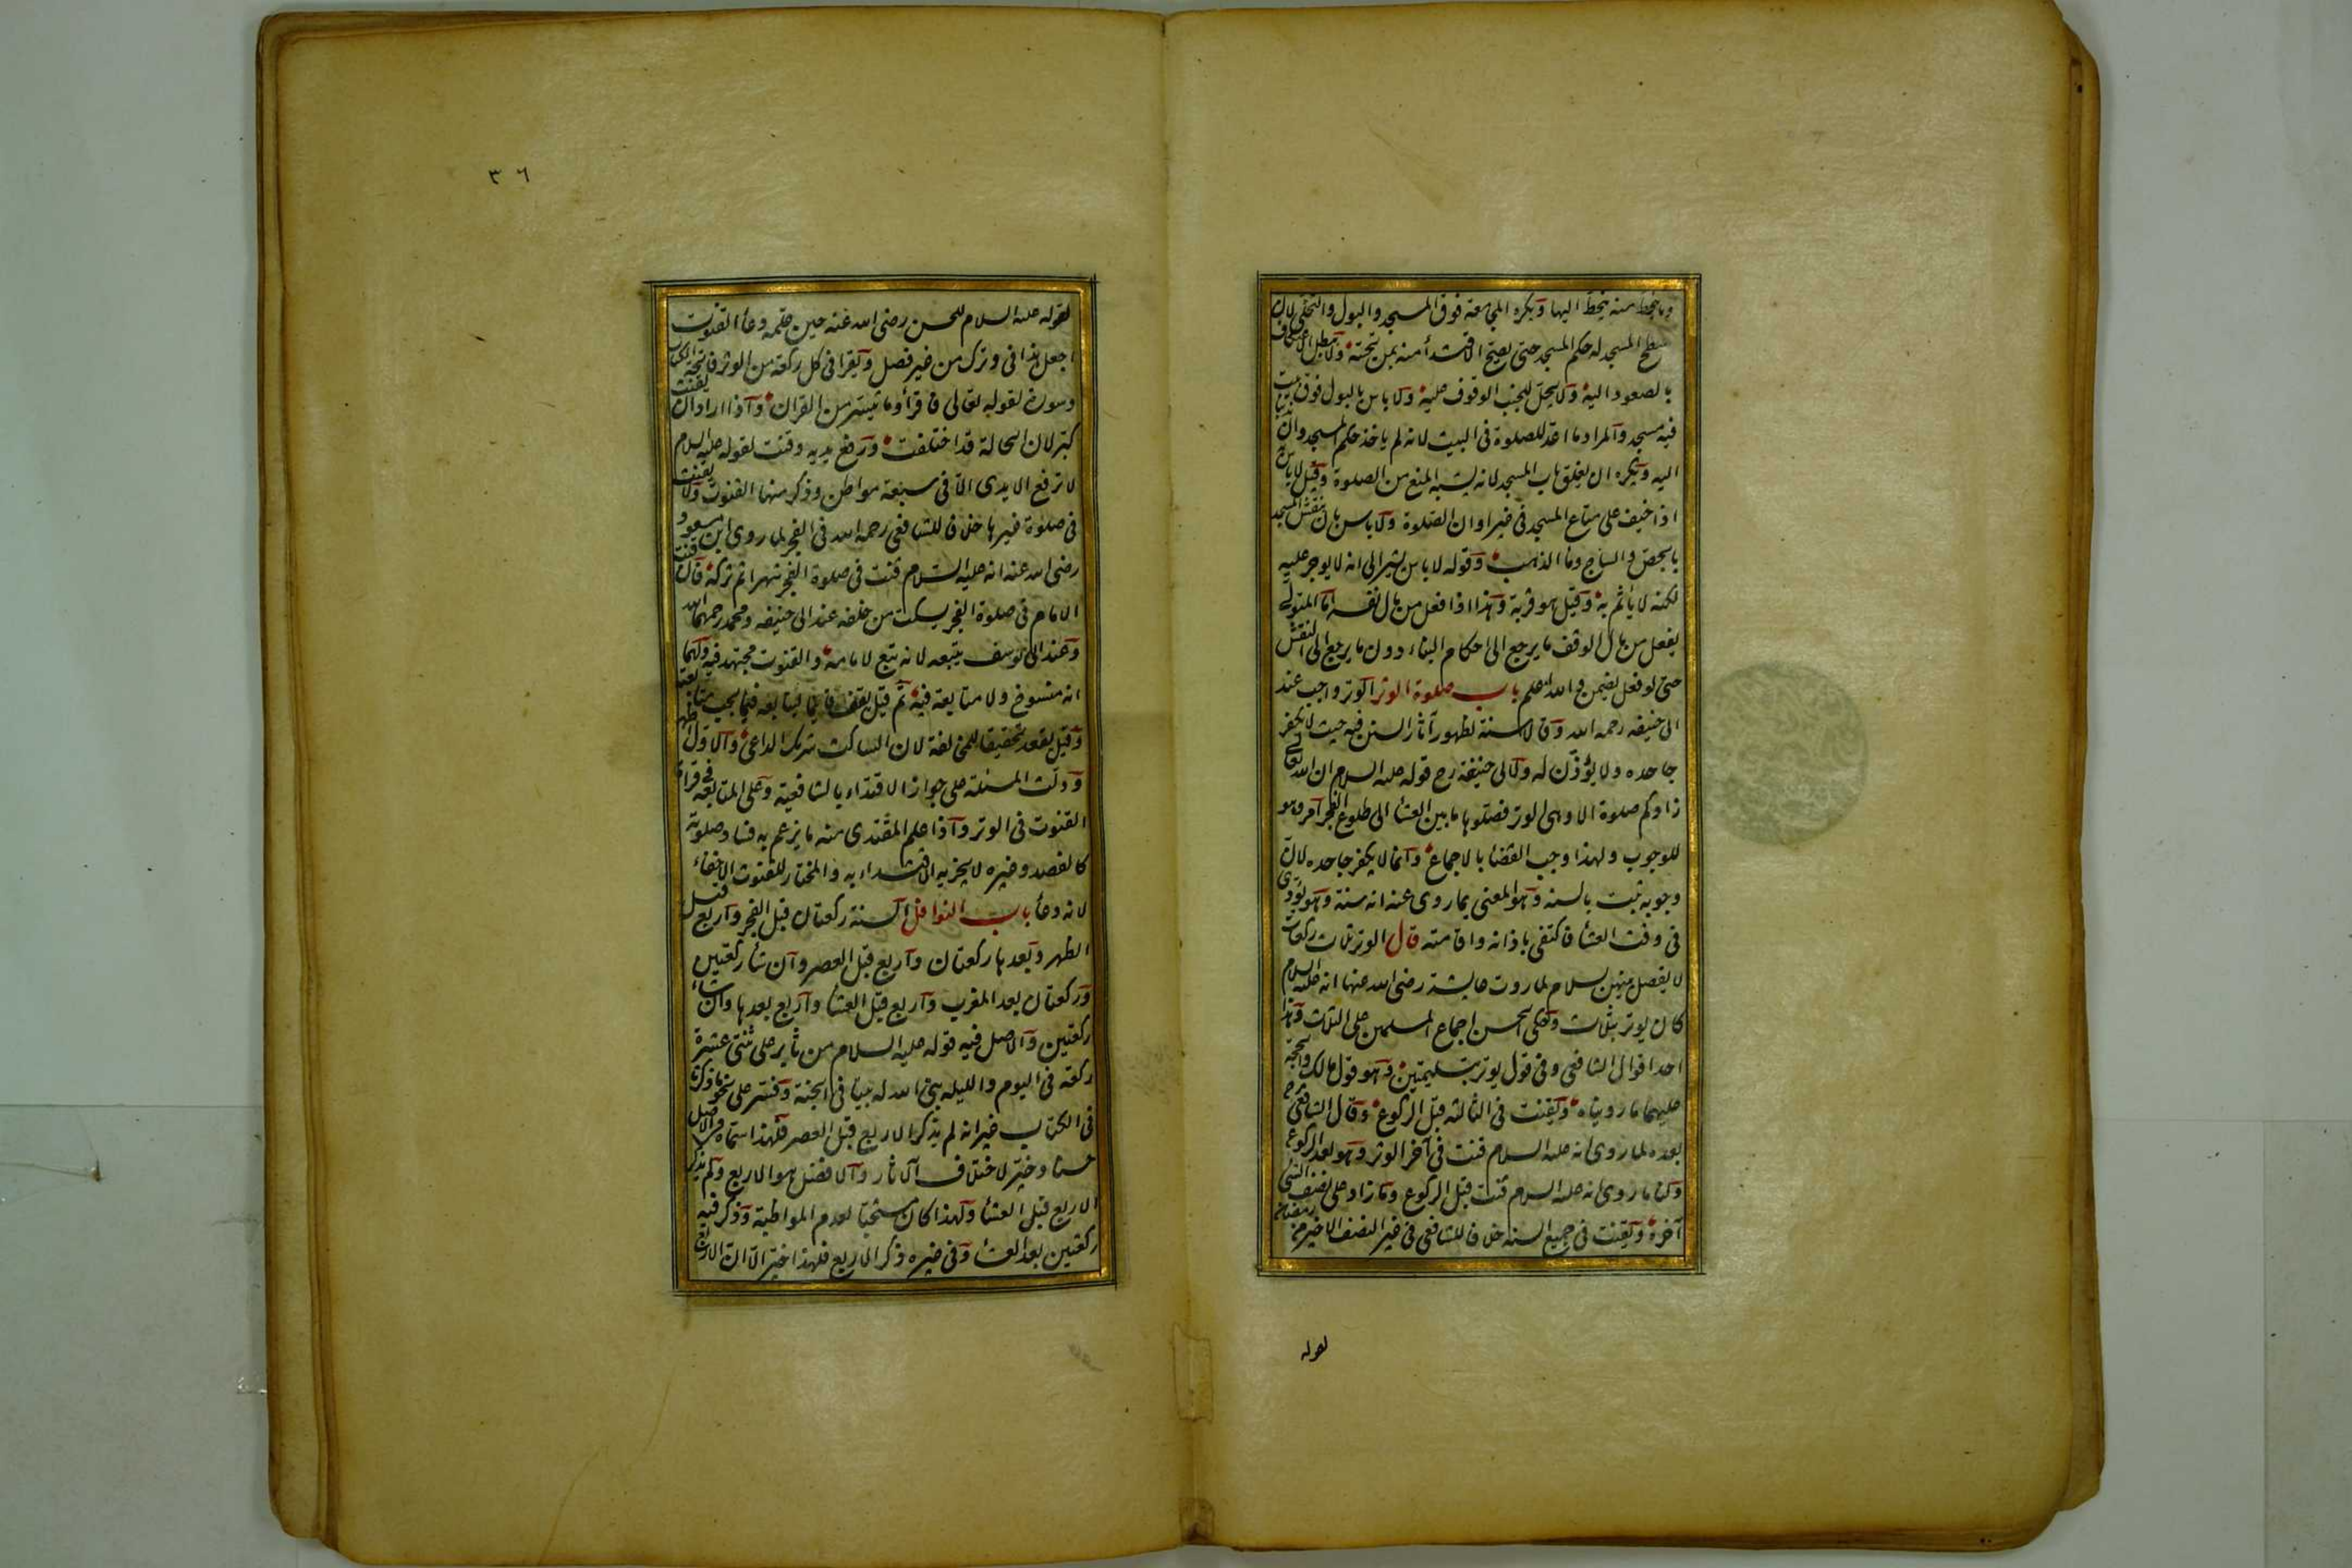 وما ينحط منه ينحط اليها ويكره المجامعة فوق المسجد والبول والتخلى لان
سطح المسجد له حكم المسجد حتى يصح الاقتداء منه بمن تحته ولا يبطل الاعتكاف
بالصعود اليه ولا يحل للجنب الوقوف عليه ولا باس بالبول فوق بيت
فيه مسجد والمراد ما اعد للصلوة فى البيت لانه لم ياخذ حكم المسجد وان ندبنا
اليه ويكره ان يغلق باب المسجد لانه يشبه المنع من الصلوة وقيل لا باس به
اذا خيف على متاع المسجد فى غير اوان الصلوة ولا باس بان ينقش المسجد
بالجص والساج وماء الذهب وقوله لا باس يشير الى انه لا يوجر عليه
لكنه لا ياثم به وقيل هو قربة وهذا اذا فعل من مال نفسه اما المتولى
يفعل من مال الوقف ما يرجع الى احكام البناء دون ما يرجع الى النقش
حتى لو فعل يضمن والله اعلم باب صلوة الوتر الوتر واجب عند
ابى حنيفه رحمه الله وقالا سنة لظهور آثار السنن فيه حيث لا يكفر
جاحده ولا يؤذن له ولابى حنيفة رح قوله عليه السلام ان الله تعالى
زادكم صلوة الا وهى الوتر فصلوها ما بين العشا الى طلوع الفجر امر وهو
للوجوب ولهذا وجب القضا بالاجماع وانما لا يكفر جاحده لان
وجوبه ثبت بالسنه وهو المعنى بما روى عنه انه سنة وهو يؤدى
فى وقت العشا فاكتفى باذانه واقامته قال الوتر ثلاث ركعات
لا يفصل بينهن بسلام لما روت عايشة رضى الله عنها انه عليه السلام
كان يوتر بثلاث وحكى الحسن اجماع المسلمين على الثلاث وهذا
احد اقوال الشافعى وفى قول يوتر بتسليمتين وهو قول مالك والحجة
عليهما ما رويناه ويقنت فى الثالثه قبل الركوع وقال الشافعى رح
بعده لما روى انه عليه السلام قنت فى آخر الوتر وهو بعد الركوع
ولنا ما روى انه عليه السلام قنت قبل الركوع وما زاد على نصف الشى
آخره ويقنت فى جميع السنه خلافا للشافعى فى غير النصف الاخير من رمضان
لقوله
٣٦
لقوله عليه السلام للحسن رضى الله عنه حين علمه دعا القنوت
اجعل هذا فى وترك من غير فصل ويقرا فى كل ركعة من الوتر فاتحة الكتاب
وسورة لقوله تعالى فاقرأوا ما تيسر من القران واذا اراد ان يقنت
كبر لان الحالة قد اختلفت ورفع يديه وقنت لقوله عليه السلام
لا ترفع الايدى الا فى سبعة مواطن وذكر منها القنوت ولا يقنت
فى صلوة غيرها خلافا للشافعى رحمه الله فى الفجر لما روى ابن مسعود
رضى الله عنه انه عليه السلام قنت فى صلوة الفجر شهرا ثم تركه فان قنت
الامام فى صلوة الفجر يسكت من خلفه عند ابى حنيفه ومحمد رحمهما الله
وعند ابى يوسف يتبعه لانه تبع لامامه والقنوت مجتهد فيه ولهما
انه منسوخ ولا متابعة فيه ثم قيل يقف قايما ليتابعه فيما يجب متابعته
وقيل يقعد تحقيقا للمخالفة لان الساكت شريك الداعى والاول اظهر
ودلت المسئلة على جواز الاقتداء بالشافعية وعلى المتابعة فى قراءة
القنوت فى الوتر واذا علم المقتدى منه ما يزعم به فساد صلوته
كالفصد وغيره لا يجزيه الاقتداء به والمختار للقنوت الاخفاء
لانه دعا باب النوافل السنة ركعتان قبل الفجر واربع قبل
الظهر وبعدها ركعتان واربع قبل العصر وان شا ركعتين
وركعتان بعد المغرب واربع قبل العشا واربع بعدها وان شاء
ركعتين والاصل فيه قوله عليه السلام من ثابر على ثنتى عشرة
ركعة فى اليوم والليله بنى الله له بيتا فى الجنة وفسر على نحو ما ذكرنا
فى الكتاب غير انه لم يذكر الاربع قبل العصر فلهذا سماه فى الاصل
حسنا وخير لاختلاف الاثار والافضل هو الاربع ولم يذكر
الاربع قبل العشا ولهذا كان مستحبا لعدم المواظبة وذكر فيه
ركعتين بعد العشا وفى غيره ذكر الاربع فلهذا خير الا ان الاربع